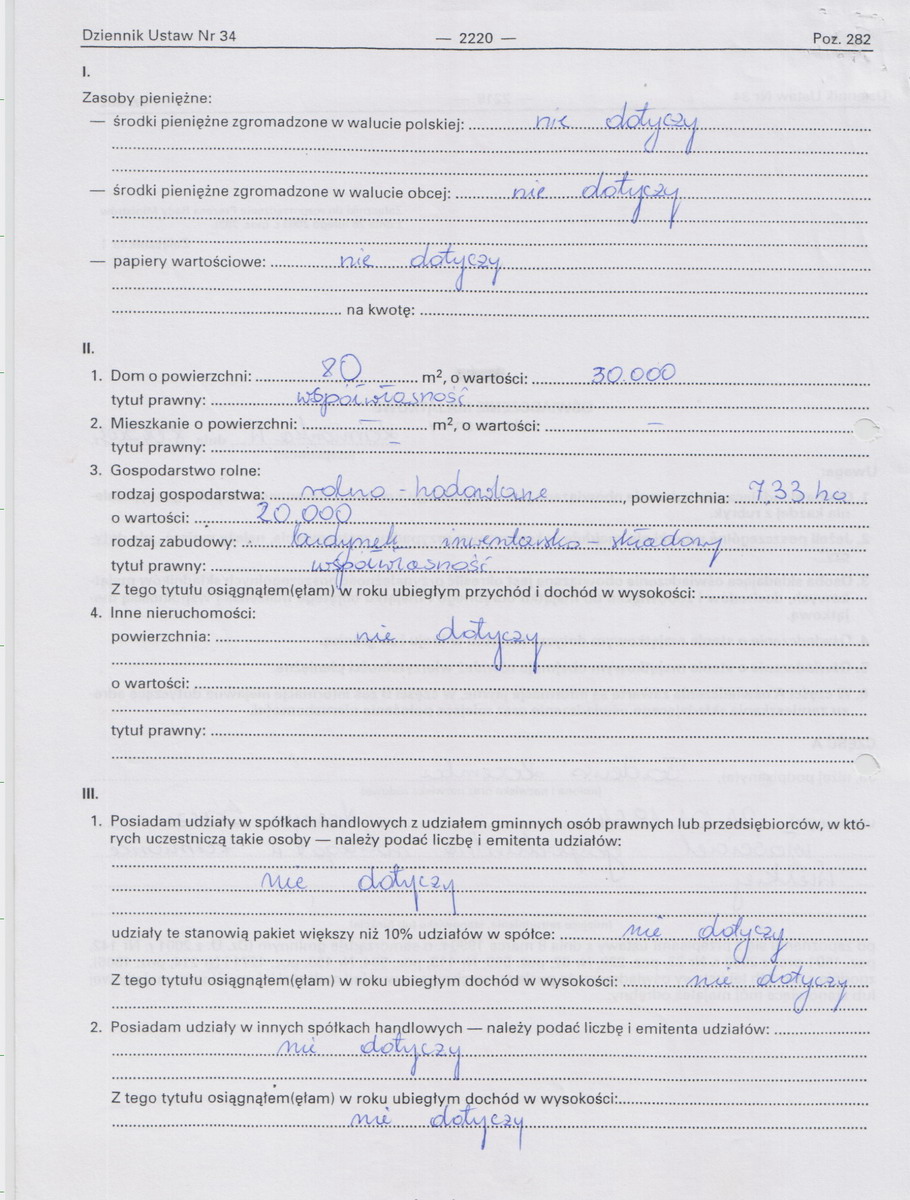 Dziennik Ustaw Nr 34 — 2220 — Poz. 282
I.
Zasoby pieniężne:
— środki pieniężne zgromadzone w walucie polskiej: nie dotyczy
— środki pieniężne zgromadzone w walucie obcej: nie dotyczy
— papiery wartościowe: nie dotyczy
na kwotę:
II.
1. Dom o powierzchni: 80 m², o wartości: 30.000
tytuł prawny: współwłasność
2. Mieszkanie o powierzchni: — m², o wartości: —
tytuł prawny: —
3. Gospodarstwo rolne:
rodzaj gospodarstwa: rolno - hodowlane, powierzchnia: 7,33 ha
o wartości: 20.000
rodzaj zabudowy: budynek inwentarsko - składowy
tytuł prawny: współwłasność
Z tego tytułu osiągnąłem(ęłam) w roku ubiegłym przychód i dochód w wysokości:
4. Inne nieruchomości:
powierzchnia: nie dotyczy
o wartości:
tytuł prawny:
III.
1. Posiadam udziały w spółkach handlowych z udziałem gminnych osób prawnych lub przedsiębiorców, w któ-
rych uczestniczą takie osoby — należy podać liczbę i emitenta udziałów:
nie dotyczy
udziały te stanowią pakiet większy niż 10% udziałów w spółce: nie dotyczy
Z tego tytułu osiągnąłem(ęłam) w roku ubiegłym dochód w wysokości: nie dotyczy
2. Posiadam udziały w innych spółkach handlowych — należy podać liczbę i emitenta udziałów:
nie dotyczy
Z tego tytułu osiągnąłem(ęłam) w roku ubiegłym dochód w wysokości:
nie dotyczy